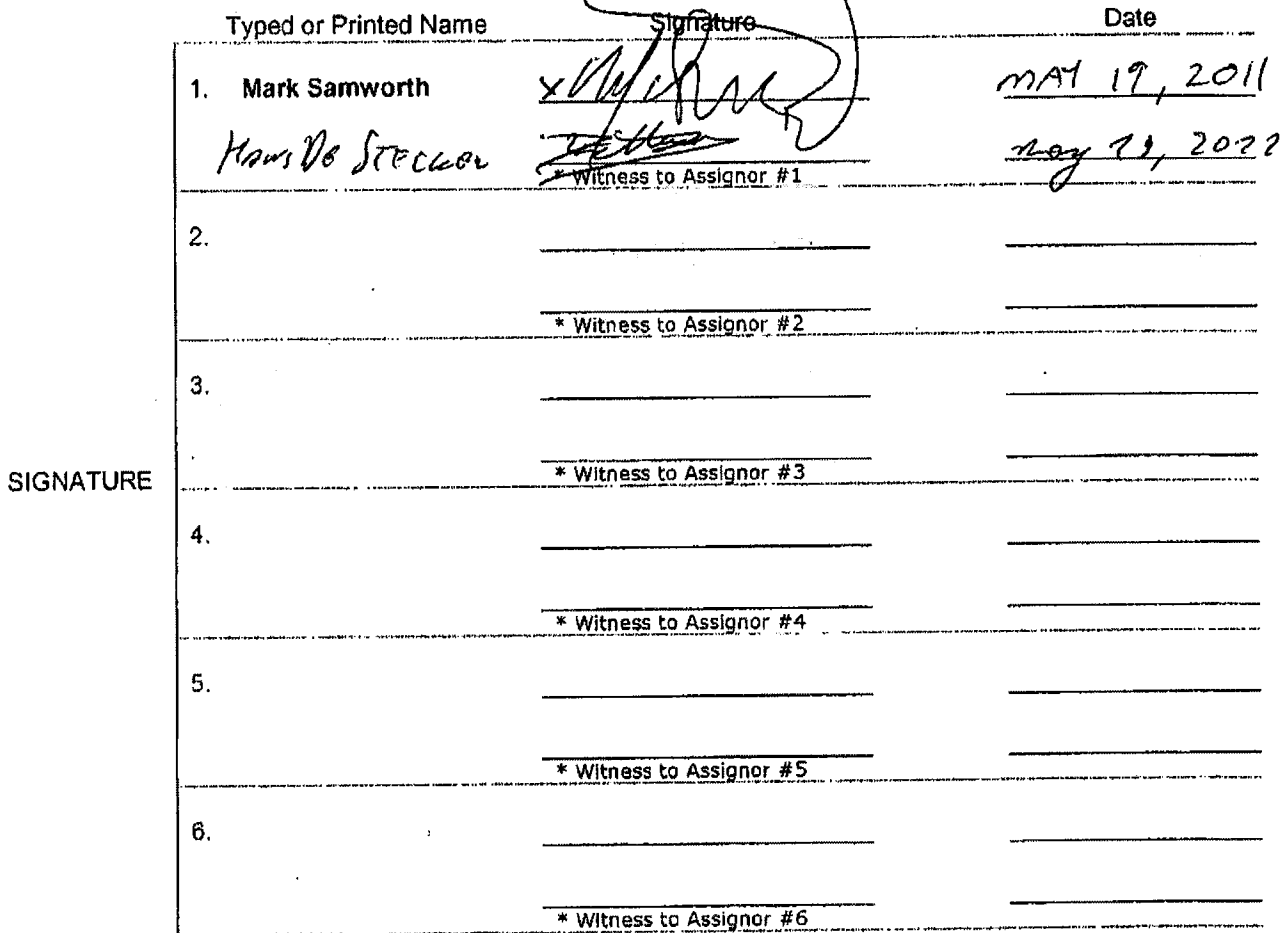 Typed or Printed Name Signature Date
1. Mark Samworth x MAY 19, 2011
Hans De Stecker May 19, 2022
* Witness to Assignor #1
2.
* Witness to Assignor #2
3.
* Witness to Assignor #3
SIGNATURE
4.
* Witness to Assignor #4
5.
* Witness to Assignor #5
6.
* Witness to Assignor #6